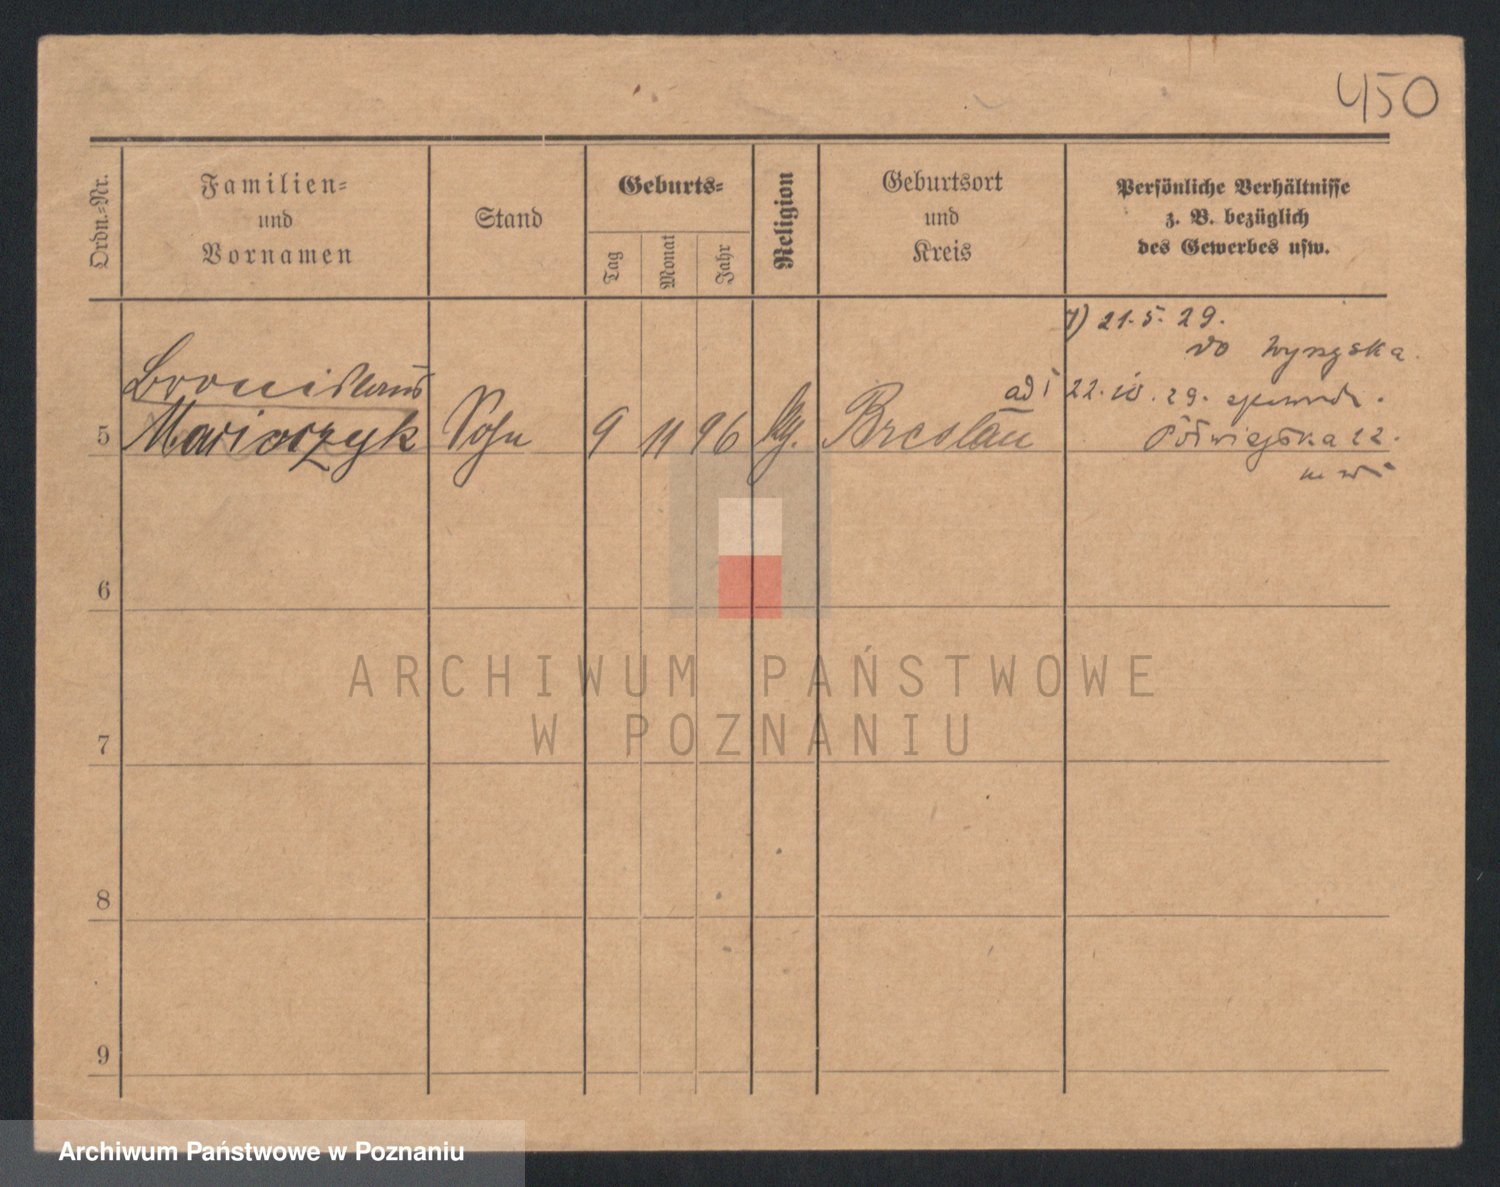 450
Ordn.-Nr.
Familien-
und
Vornamen
Stand
Geburts-
Tag
Monat
Jahr
Religion
Geburtsort
und
Kreis
Persönliche Verhältnisse
z. B. bezüglich
des Gewerbes usw.
1) 21.5.29.
do Wyrzyska.
Bronislaus
ad 1 22.10.29.
5 Marioszyk Sohn 9 11 96 kg. Breslau
Półwiejska 22.
6
7
8
9
ARCHIWUM PAŃSTWOWE
W POZNANIU
Archiwum Państwowe w Poznaniu